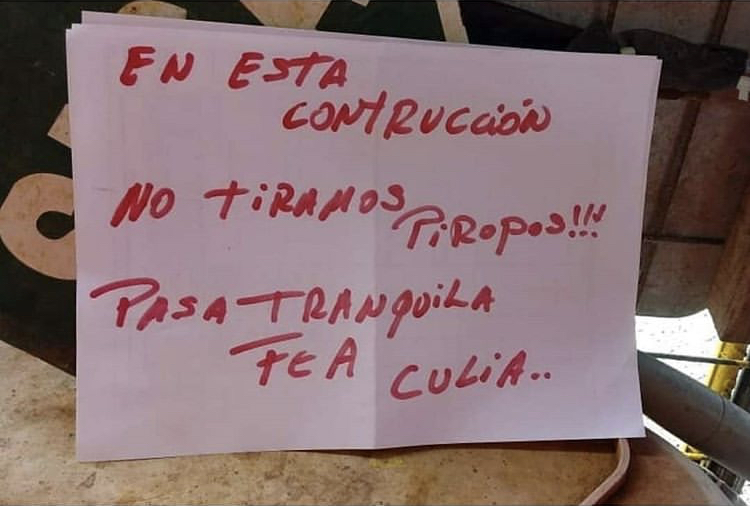 EN ESTA
CONTRUCCIÓN
NO TIRAMOS
PIROPOS!!!
PASA TRANQUILA
FEA CULIA..